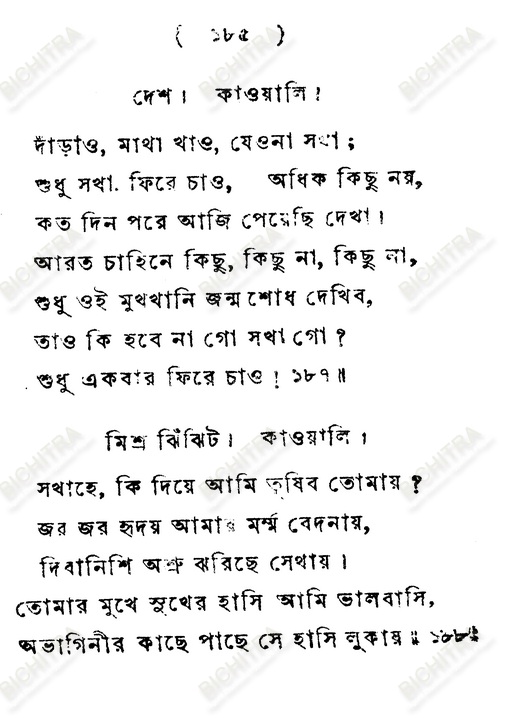 ( ১৮৫ )
দেশ। কাওয়ালি।
দাঁড়াও, মাথা খাও, যেওনা সখা ;
শুধু সখা. ফিরে চাও, অধিক কিছু নয়,
কত দিন পরে আজি পেয়েছি দেখা।
আরত চাহিনে কিছু, কিছু না, কিছু না,
শুধু ওই মুখখানি জন্মশোধ দেখিব,
তাও কি হবে না গো সখা গো ?
শুধু একবার ফিরে চাও ! ১৮৭॥
মিশ্র ঝিঁঝিট। কাওয়ালি।
সখাহে, কি দিয়ে আমি তুষিব তোমায় ?
জর জর হৃদয় আমার মর্ম্ম বেদনায়,
দিবানিশি অশ্রু ঝরিছে সেথায়।
তোমার মুখে সুখের হাসি আমি ভালবাসি,
অভাগিনীর কাছে পাছে সে হাসি লুকায়॥ ১৮৮॥
BICHITRA